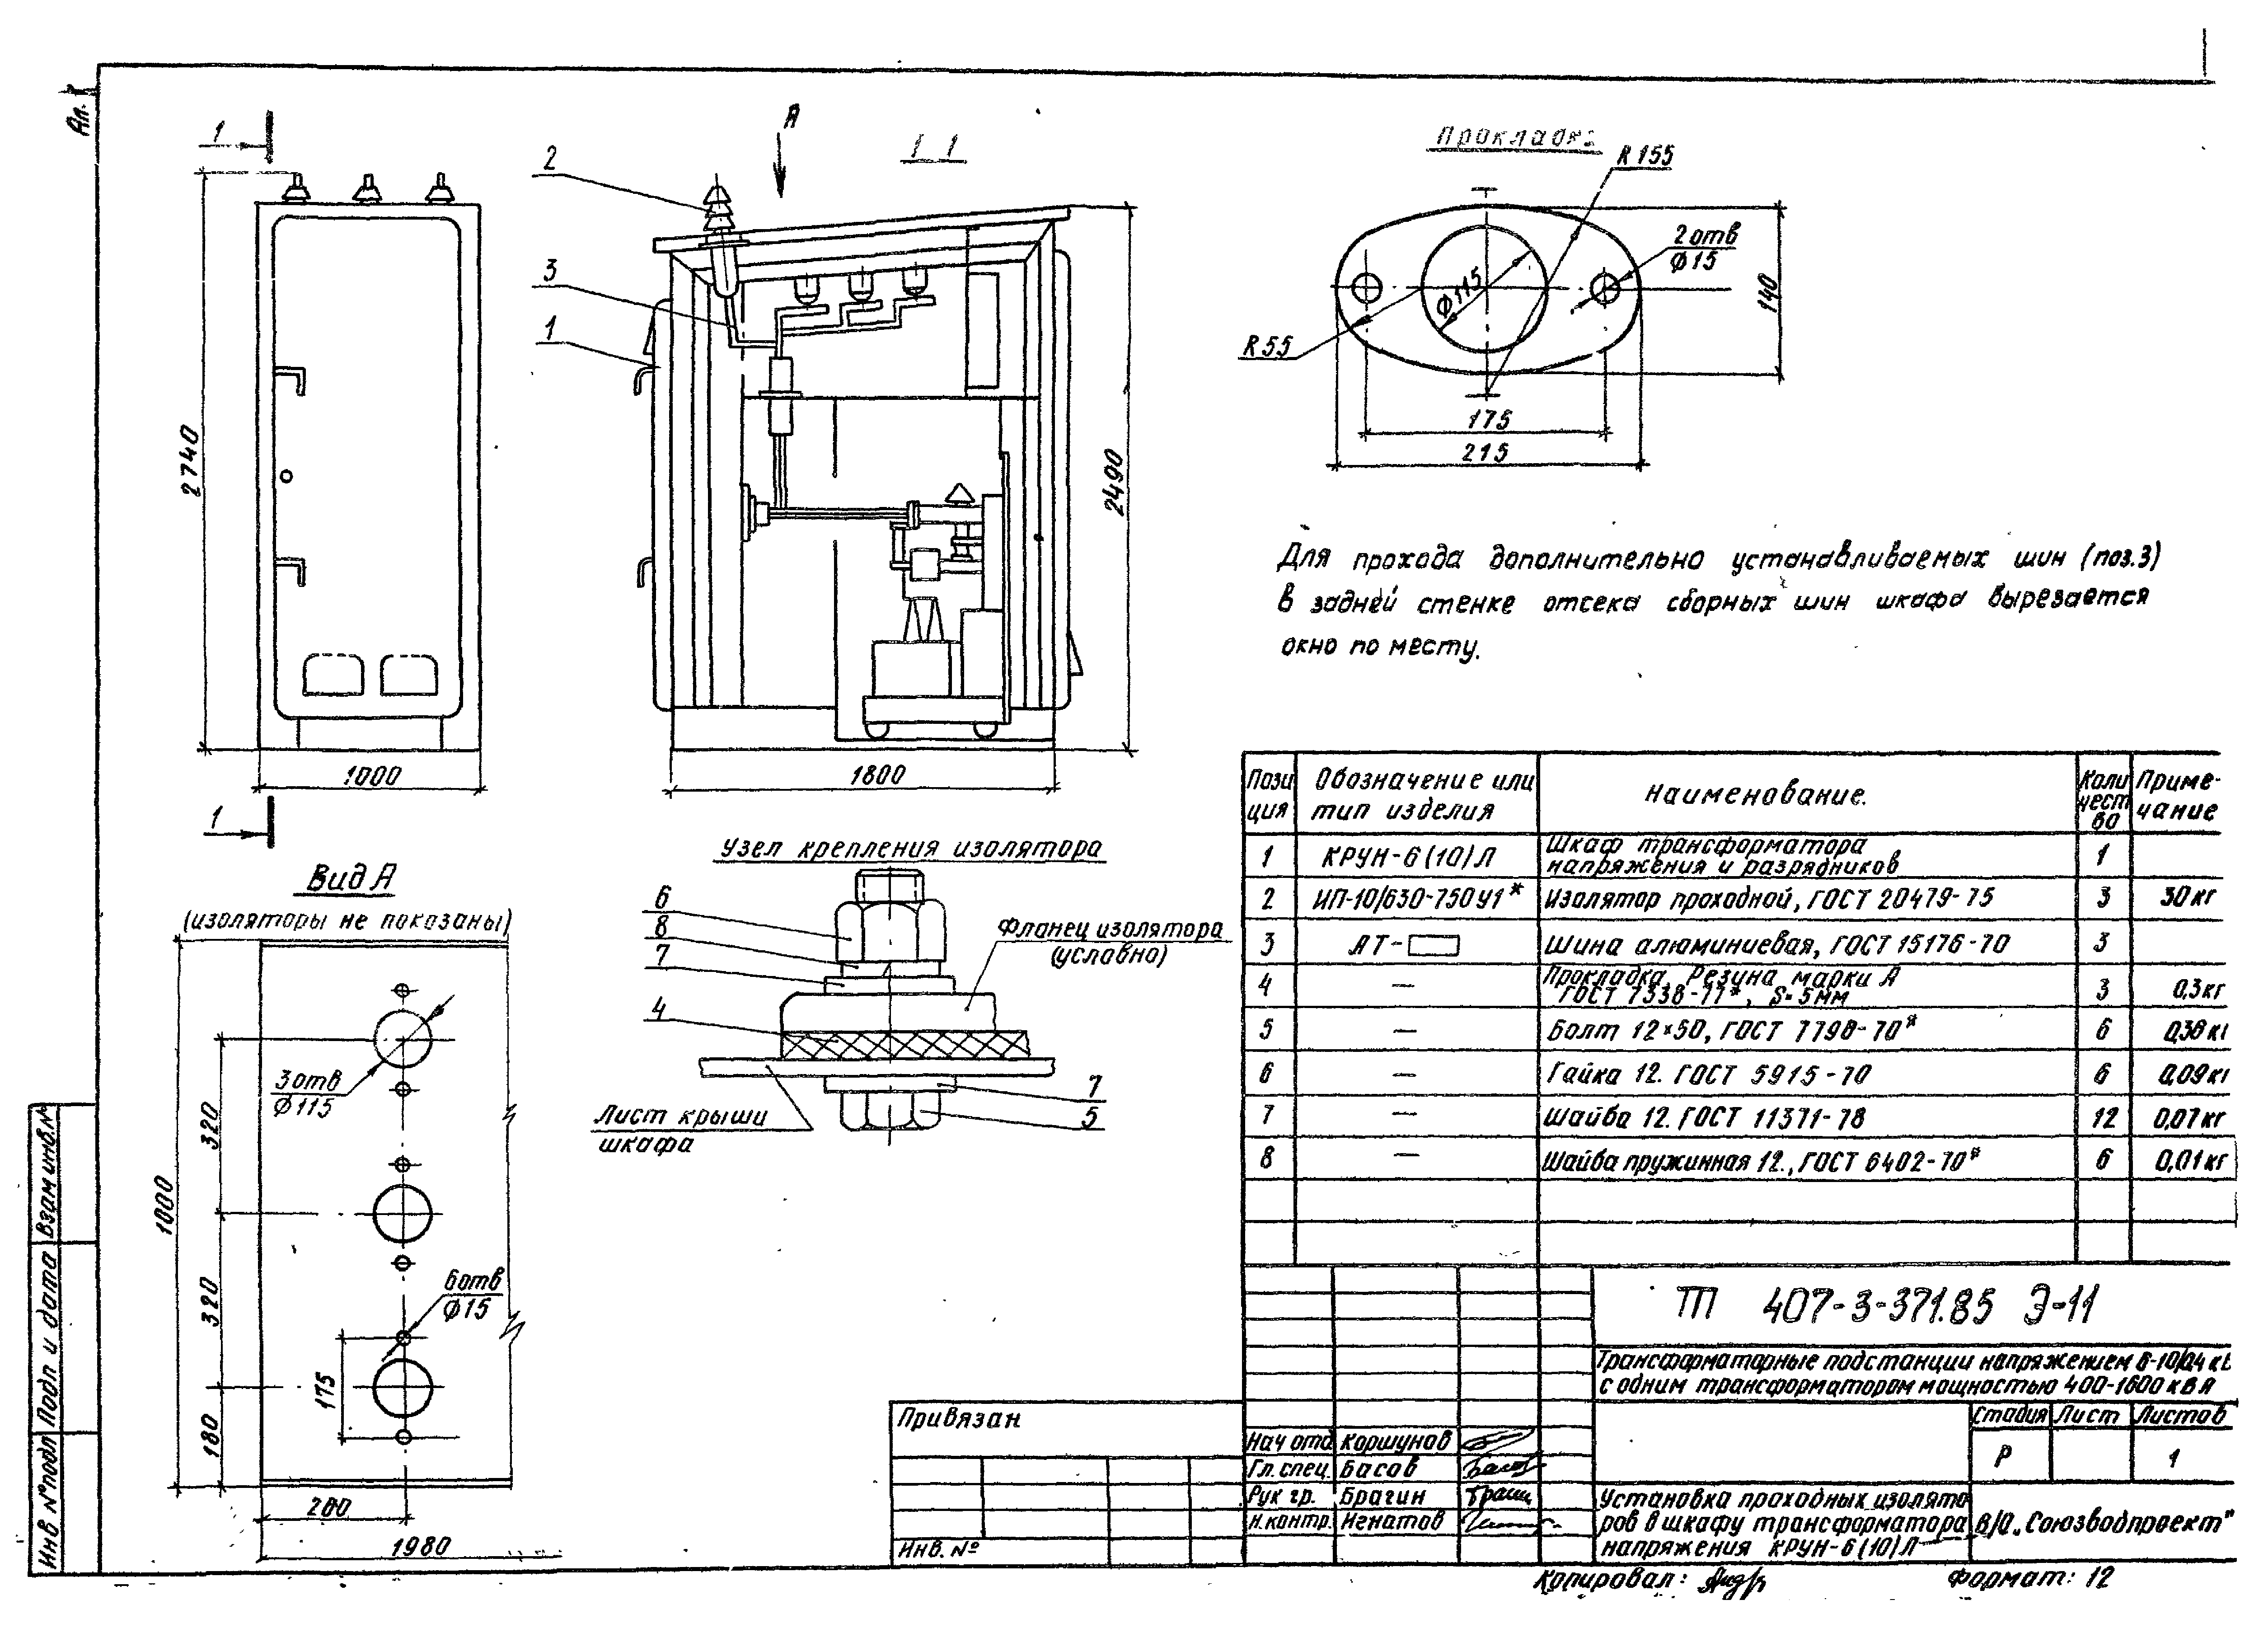 Ал.
1
2740
1000
1
А
1 1
2
3
1
2490
1800
Прокладка
R 155
2 отв
Ф 15
Ф 115
R 55
140
175
215
Для прохода дополнительно устанавливаемых шин (поз.3)
в задней стенке отсека сборных шин шкафа вырезается
окно по месту.
Вид А
(изоляторы не показаны)
3 отв
Ф 115
6 отв
Ф 15
175
320
320
180
1000
280
1980
Узел крепления изолятора
6
8
7
4
Фланец изолятора
(условно)
7
5
Лист крыши
шкафа
Пози Обозначение или Наименование. Коли Приме-
ция тип изделия чест чание
во
1 КРУН-6(10)Л Шкаф трансформатора
напряжения и разрядников 1
2 ИП-10/630-750У1* Изолятор проходной, ГОСТ 20479-75 3 30 кг
3 АТ- Шина алюминиевая, ГОСТ 15176-70 3
4 — Прокладка, Резина марки А
ГОСТ 7338-77*, S=5мм 3 0,3 кг
5 — Болт 12×50, ГОСТ 7798-70* 6 0,38 кг
6 — Гайка 12. ГОСТ 5915-70 6 0,09 кг
7 — Шайба 12. ГОСТ 11371-78 12 0,07 кг
8 — Шайба пружинная 12., ГОСТ 6402-70* 6 0,01 кг
ТП 407-3-371.85 Э-11
Трансформаторные подстанции напряжением 6-10/0,4 кВ
с одним трансформатором мощностью 400-1600 кВА
Стадия Лист Листов
Р 1
Нач отд Коршунов
Гл. спец. Басов Басов
Рук гр. Брагин
Н. контр. Игнатов
Установка проходных изолято
ров в шкафу трансформатора
напряжения КРУН-6(10)Л
В/О „Союзводпроект"
Привязан
Инв. №
Инв № подл
Подп и дата
Взам инв. №
Копировал:
Формат: 12